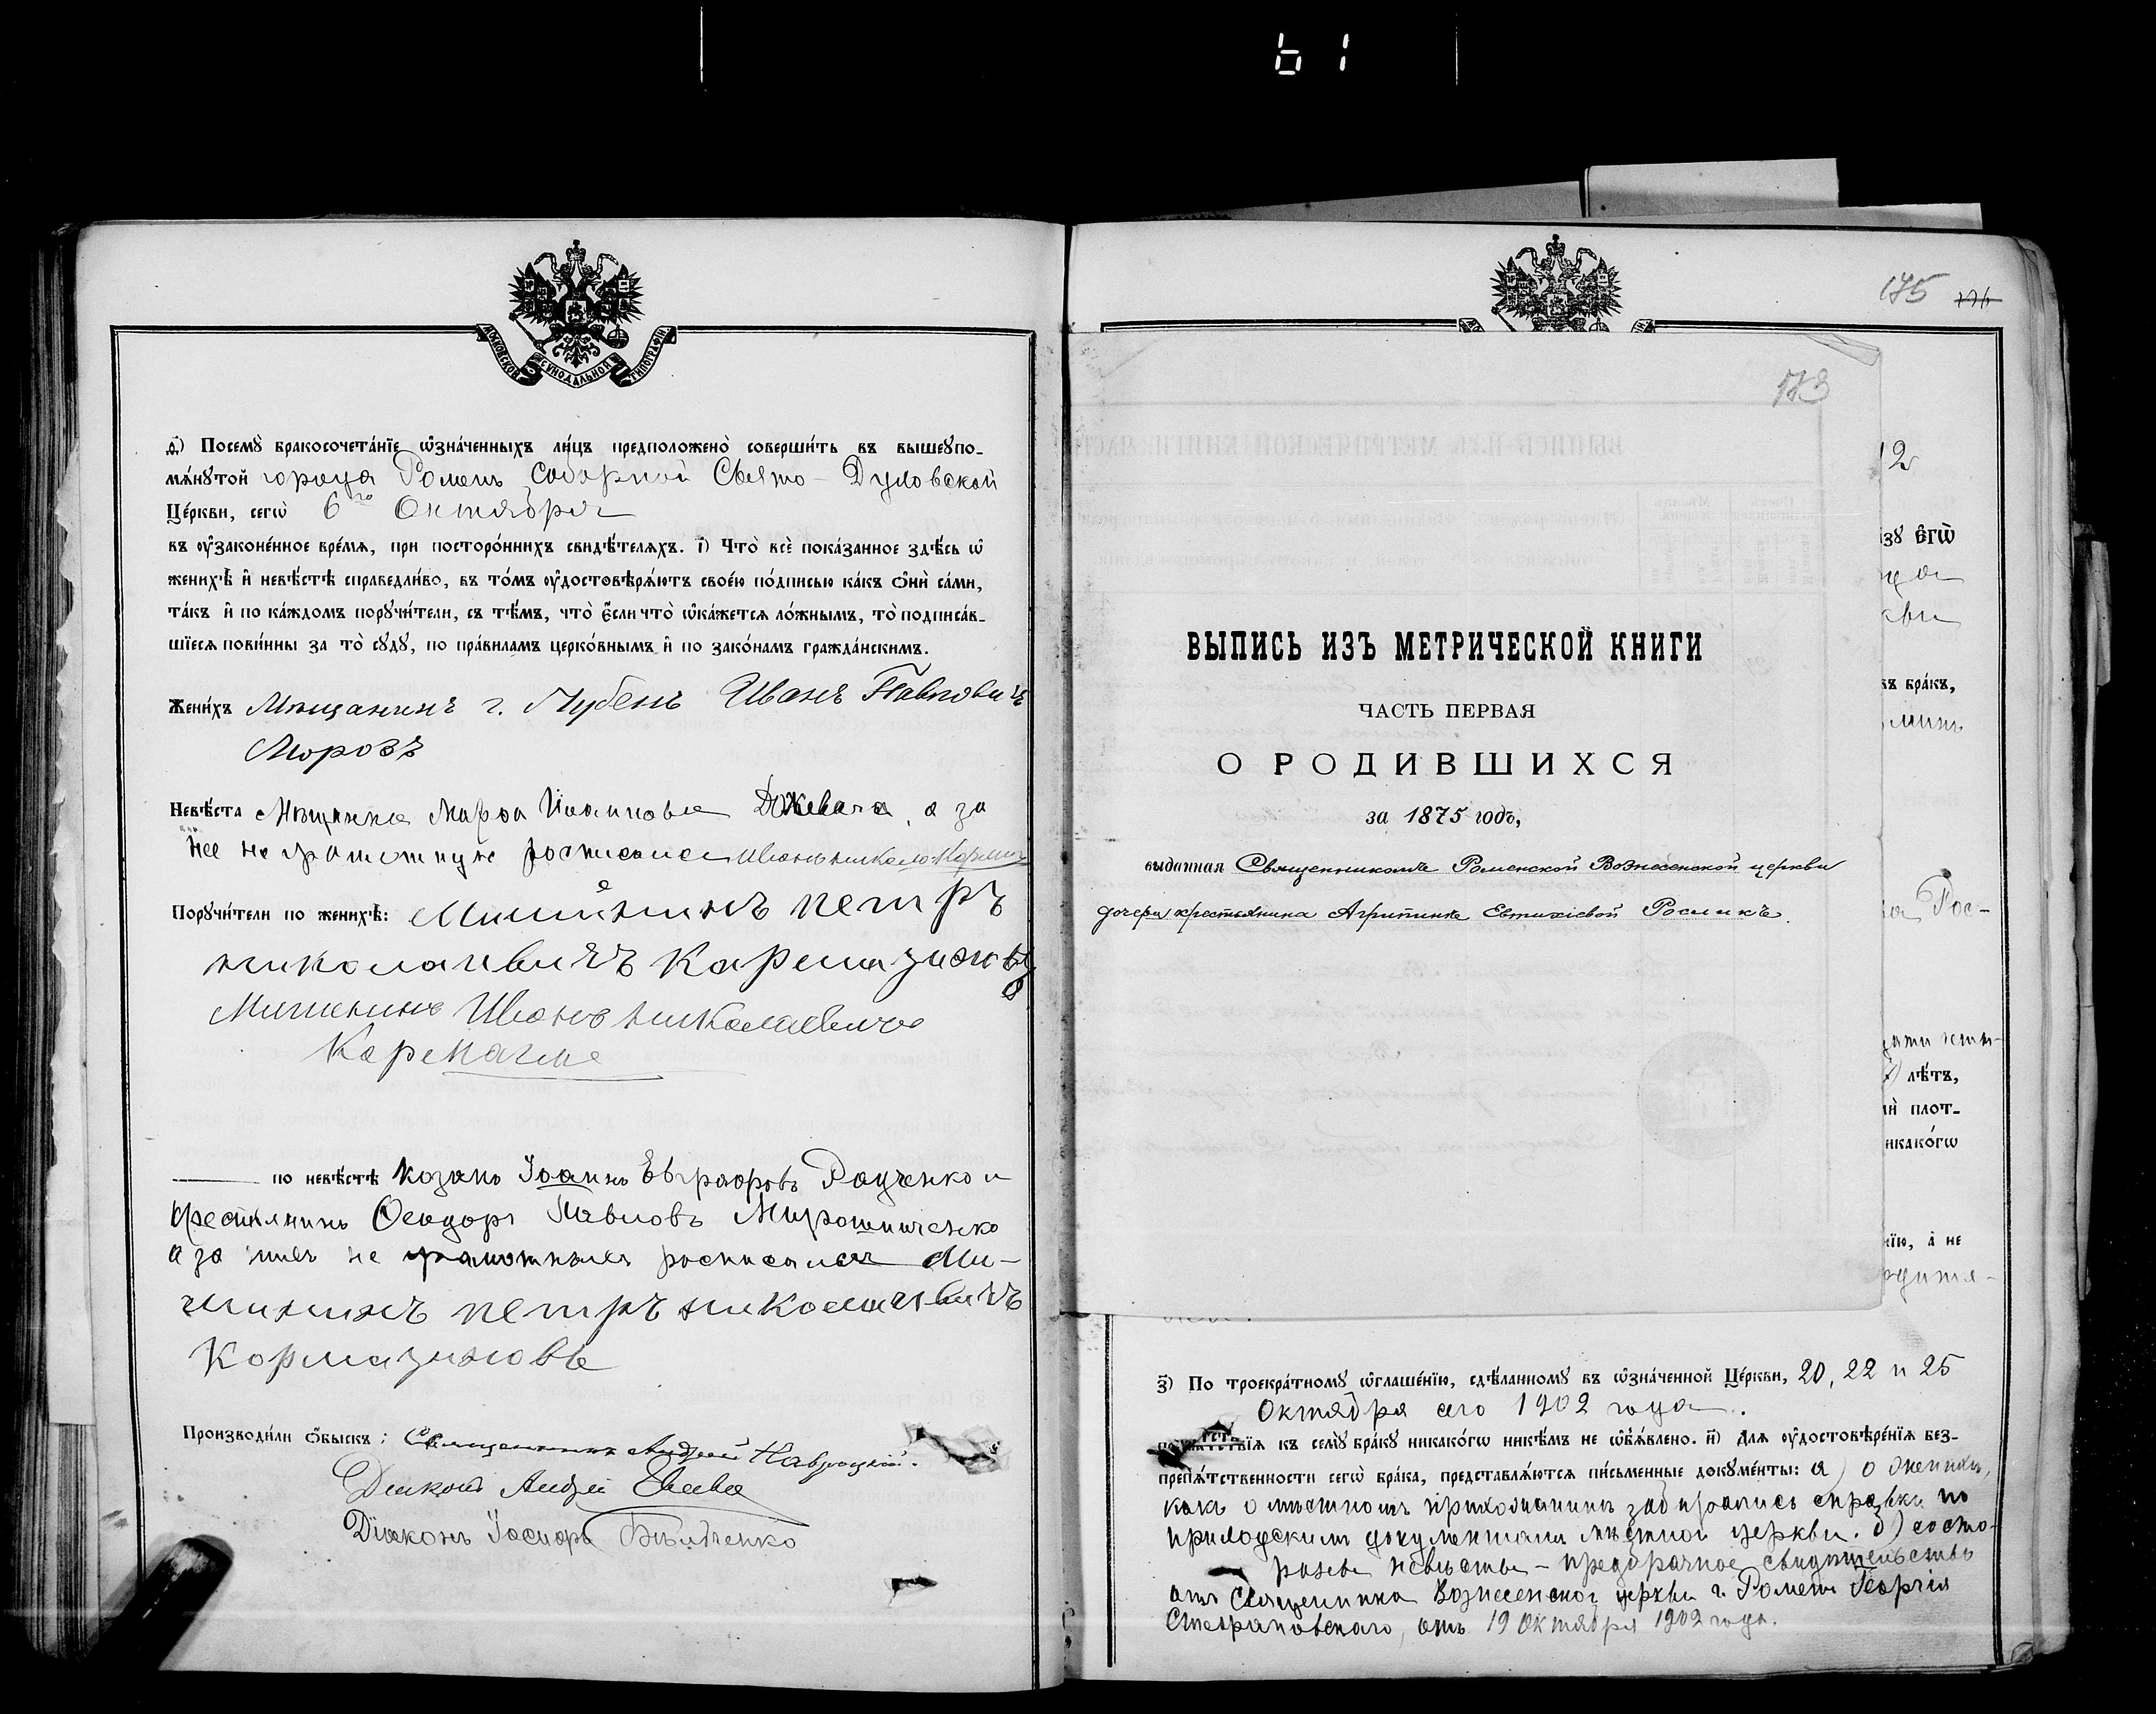 61
МОСКОВСКОЙ СѴНОДАЛЬНОЙ ТИПОГРАФІИ
д҃) Посемꙋ̀ бракосочета́нїе ѡ҆зна́ченныхъ ли́цъ предположено̀ соверши́ть въ вышеꙋпо-
мѧ́нꙋтой города Роменъ соборной Свято-Духовской
Це́ркви, сегѡ̀ 6го Октября
въ ᲂу҆зако́не́нное вре́мѧ, при посторо́ннихъ свидѣ́телѧхъ. і҃) Что̀ всѐ пока́занное здѣ́сь ѡ҆
женихѣ̀ и҆ невѣ́стѣ справедли́во, въ то́мъ ᲂу҆достовѣрѧ́ютъ свое́ю по́дписью ка́къ ѻ҆нѝ са́ми,
та́къ и҆ по ка́ждомъ порꙋчи́тели, съ тѣ́мъ, что̀ є҆́сли что̀ ѡ҆ка́жетсѧ ло́жнымъ, то̀ подписа́в-
шїесѧ пови́нны за то̀ сꙋдꙋ̀, по пра́виламъ церко́внымъ и҆ по зако́намъ гражда́нскимъ.
Жени́хъ Мѣщанинъ г. Лубенъ Иванъ Павловичъ
Морозъ
Невѣ́ста Мѣщанка Марѳа Иванова, а за
нее не грамотную росписался Иванъ
Порꙋчи́тели по женихѣ̀: Мищининъ петръ
николаивичъ Кармазиновъ
Мищенинъ Иванъ николаевичъ
по невѣ́стѣ козакъ Іоаннъ Евграфовъ Радченко и
крестьянинъ Ѳеодоръ Павловъ Мирошниченко
а за нихъ не грамотныхъ росписался Ми-
щининъ петръ николаивичъ
Кормазиновъ
Производи́ли ѻ҆́быскъ: Священникъ Андрей Навроцкій.
Діаконъ Андрей
Діаконъ Іосифъ
175 176
173
ВЫПИСЬ ИЗЪ МЕТРИЧЕСКОЙ КНИГИ
ЧАСТЬ ПЕРВАЯ
О РОДИВШИХСЯ
за 1875 годъ,
выданная Священникомъ Роменской Вознесенской церкви
дочери крестьянина Агрипинѣ Евтихіевой Росликъ.
2
зꙋ є҆гѡ̀
въ бра́къ,
Рос-
лѣ́тъ,
плот-
никако́гѡ
нїю, а҆ не
з҃) По троекра́тномꙋ ѡ҆глаше́нїю, сдѣ́ланномꙋ въ ѡ҆зна́ченной Це́ркви, 20, 22 и 25
Октября сего 1902 года.
къ семꙋ̀ бра́кꙋ никако́гѡ никѣ́мъ не ѡ҆бъѧ́влено. и҃) Длѧ ᲂу҆достовѣре́нїѧ без-
препѧ́тственности сегѡ̀ бра́ка, представлѧ́ютсѧ пи́сьменные докꙋме́нты: а) о женихѣ,
какъ о мѣстномъ прихожанинѣ справка по
приходскимъ документамъ мѣстной церкви. б) со сто-
роны невѣсты – предбрачное свидѣтельство
отъ Священника Вознесенской церкви г. Роменъ Георгія
Стефановскаго, отъ 19 Октября 1902 года.